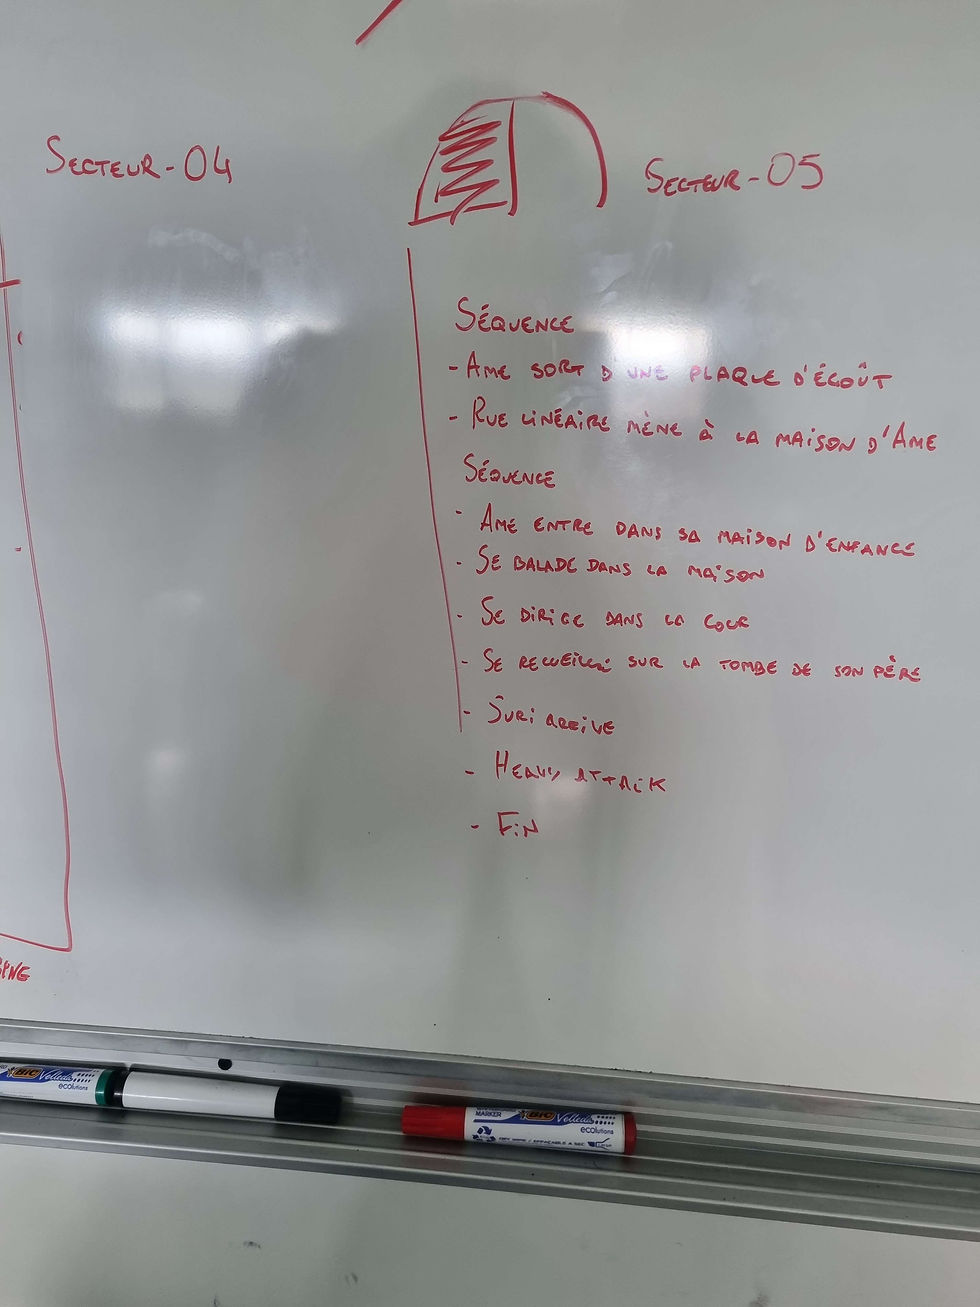 SECTEUR-04
SECTEUR-05
SÉQUENCE
- AME SORT D'UNE PLAQUE D'ÉGOÛT
- RUE LINÉAIRE MÈNE À LA MAISON D'AME
SÉQUENCE
- AME ENTRE DANS SA MAISON D'ENFANCE
- SE BALADE DANS LA MAISON
- SE DIRIGE DANS LA COUR
- SE RECUEILLI SUR LA TOMBE DE SON PÈRE
- SURI ARRIVE
- HEAVY ATTAIK
- FIN
BIC Velleda
ecolutions
MARKER BIC Velleda
ecolutions